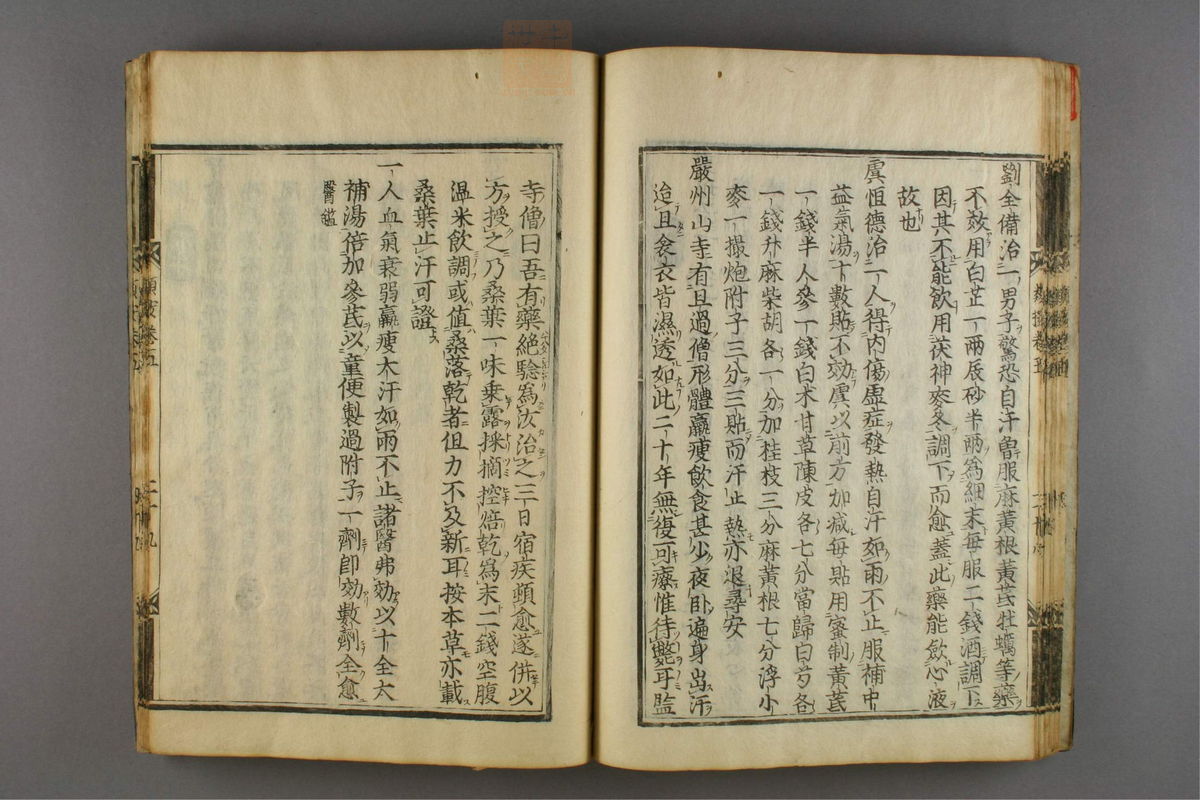 劉全備治一男子驚恐自汗魯服麻黃根黃芪牡蠣等藥
不效用白芷一兩辰砂半兩爲細末每服二錢酒調下
因其不能飲用茯神麥冬調下而愈蓋此藥能歛心液
故也
虞恒德治一人得內傷虛症發熱自汗如雨不止服補中
益氣湯十數貼不效虞以前方加減每貼用蜜制黃芪
一錢半人參一錢白朮甘草陳皮各七分當歸白芍各
一錢升麻柴胡各一分加桂枝三分麻黃根七分浮小
麥一撮炮附子三分三貼而汗止熱亦退尋安
嚴州山寺有旦過僧形體羸瘦飲食甚少夜臥遍身出汗
迨旦衾衣皆濕透如此二十年無復可療惟待斃耳監
寺僧曰吾有藥絕驗爲汝治之三日宿疾頓愈遂併以
方授之乃桑葉一味乗露採摘控焙乾爲末二錢空腹
温米飲調或值桑落乾者但力不及新耳按本草亦載
桑葉止汗可證
一人血氣衰弱羸瘦大汗如雨不止諸醫弗効以十全大
補湯倍加參芪以童便製過附子一劑卽効數劑全愈
醫鑑